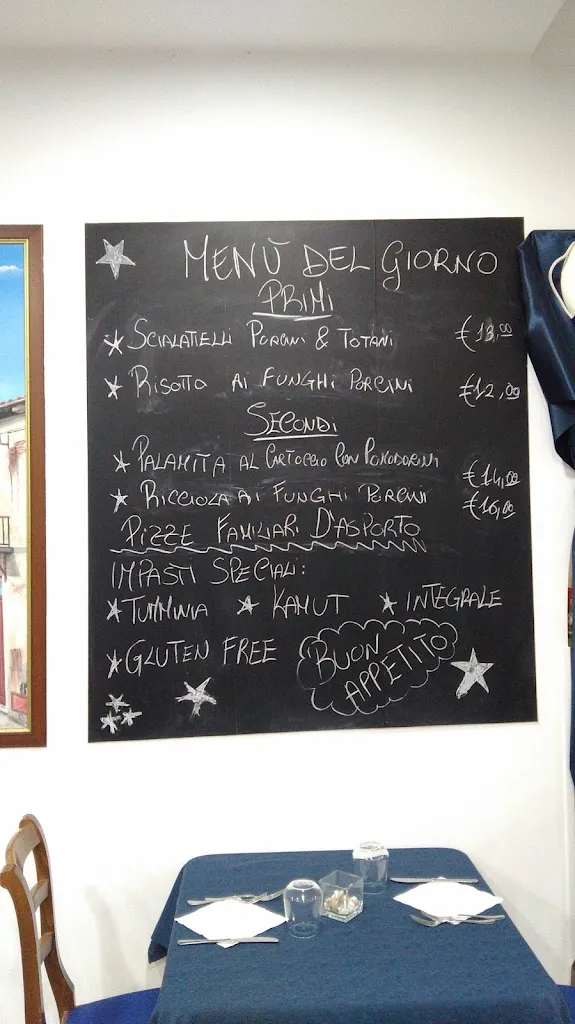 MENÙ DEL GIORNO
PRIMI
SCIALATIELLI PORCINI & TOTANI €13,00
RISOTTO AI FUNGHI PORCINI €12,00
SECONDI
PALAMITA AL CARTOCCIO CON POMODORINI €14,00
RICCIOLA AI FUNGHI PORCINI €16,00
PIZZE FAMILIARI D'ASPORTO
IMPASTI SPECIALI:
TUMMINIA KAMUT INTEGRALE
GLUTEN FREE
BUON
APPETITO